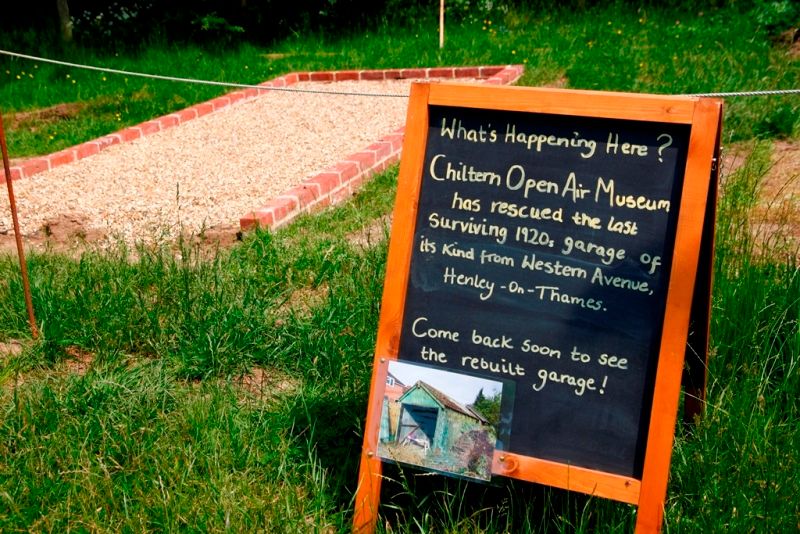 What's Happening Here?
Chiltern Open Air Museum
has rescued the last
surviving 1920s garage of
its kind from Western Avenue,
Henley-On-Thames.
Come back soon to see
the rebuilt garage!